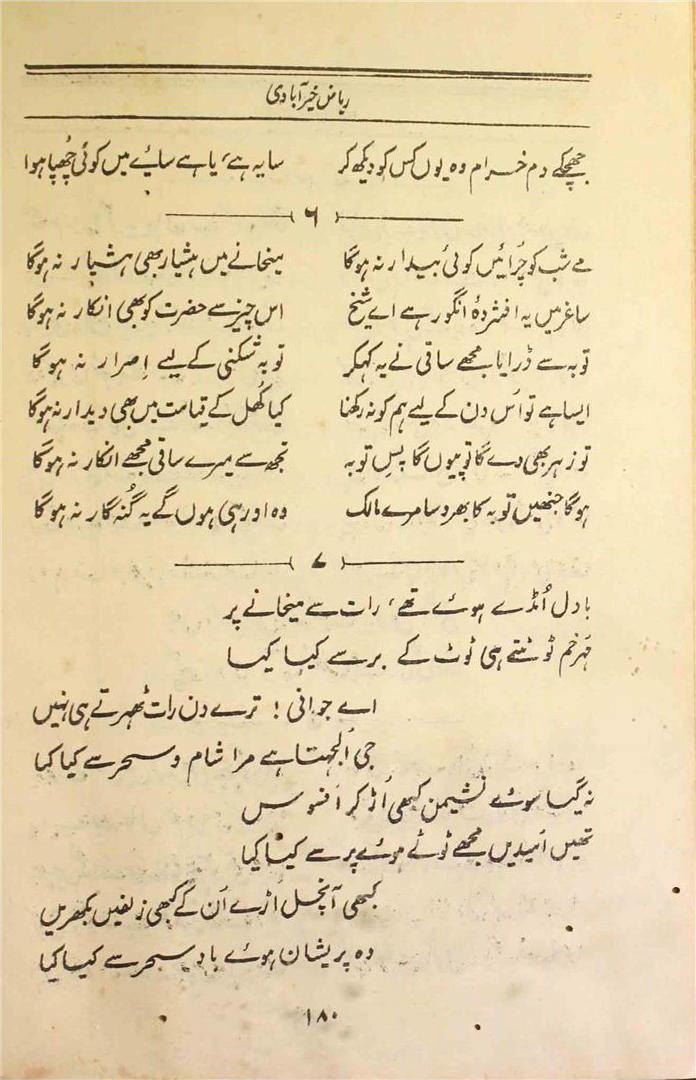 ریاض خیرآبادی
جھجکے دم خرام وہ یوں کس کو دیکھ کر سایہ ہے، یا ہے سائے میں کوئی چھپا ہوا
۶
مے شب کو چرائیں کوئی بیدار نہ ہوگا میخانے میں ہشیار بھی ہشیار نہ ہوگا
ساغر میں یہ افشردۂ انگور ہے اے شیخ اس چیز سے حضرت کو بھی انکار نہ ہوگا
توبہ سے ڈرایا مجھے ساقی نے یہ کہکر توبہ شکنی کے لیے اِصرار نہ ہوگا
ایسا ہے تو اُس دن کے لیے ہم کو نہ رکھنا کیا کُھل کے قیامت میں بھی دیدار نہ ہوگا
تو زہر بھی دے گا تو پیوں گا پسِ توبہ تجھ سے میرے ساقی مجھے انکار نہ ہوگا
ہوگا جنھیں توبہ کا بھروسا مرے مالک وہ اور ہی ہوں گے یہ گُنہ گار نہ ہوگا
۷
بادل اُمڈے ہوئے تھے، رات سے میخانے پر
مُہرِ خم ٹوٹتے ہی ٹوٹ کے برسے کیا کیا
اے جوانی! ترے دن رات ٹھہرتے ہی نہیں
جی اُلجھتا ہے مرا شام و سحر سے کیا کیا
نہ گیا سوئے نشیمن کبھی اُڑ کر افسوس
تھیں اُمیدیں مجھے ٹوٹے ہوئے پر سے کیا کیا
کبھی آنچل اُڑے اُن کے کبھی زلفیں بکھریں
وہ پریشان ہوئے بادِ سحر سے کیا کیا
۱۸۰